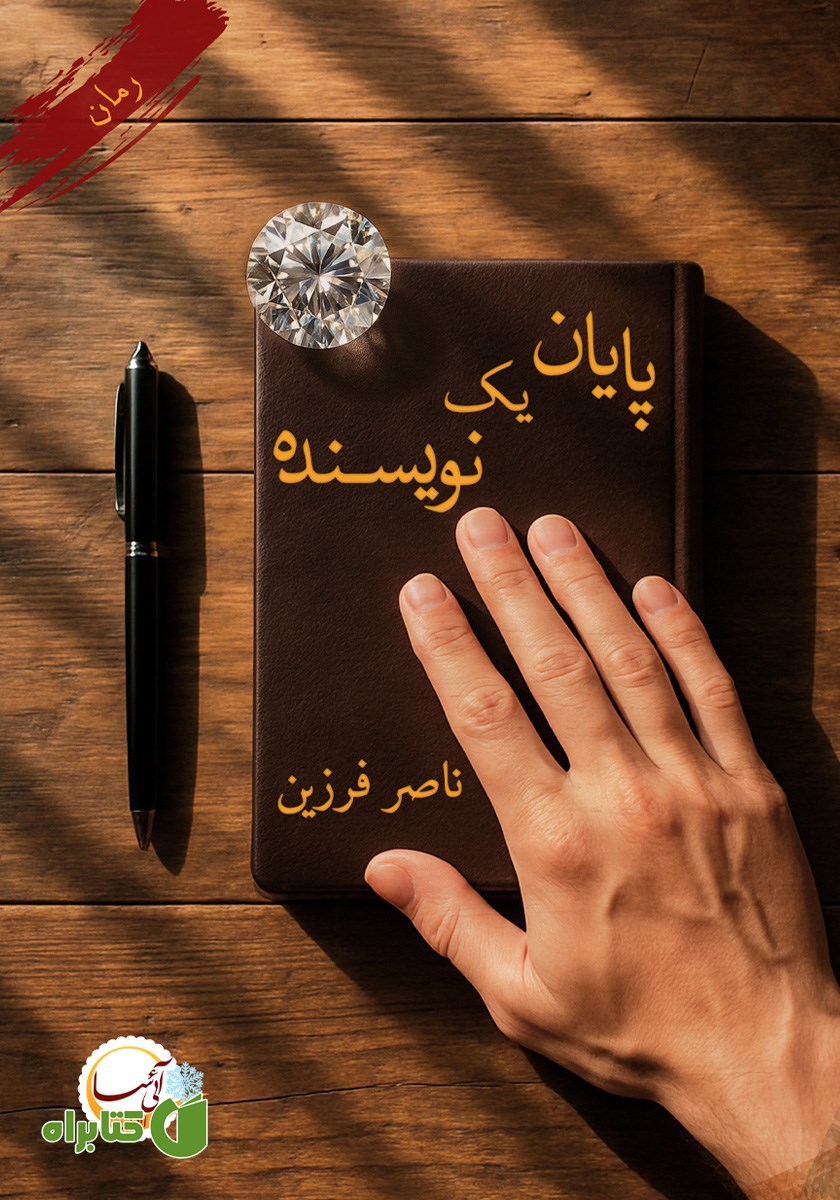 رمان
پایان
یک
نویسنده
ناصر فرزین
کتابراه